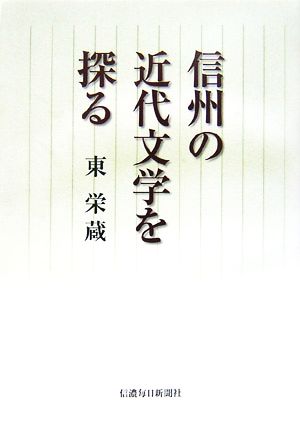 信州の
近代文学を
探る
東 栄蔵
信濃毎日新聞社